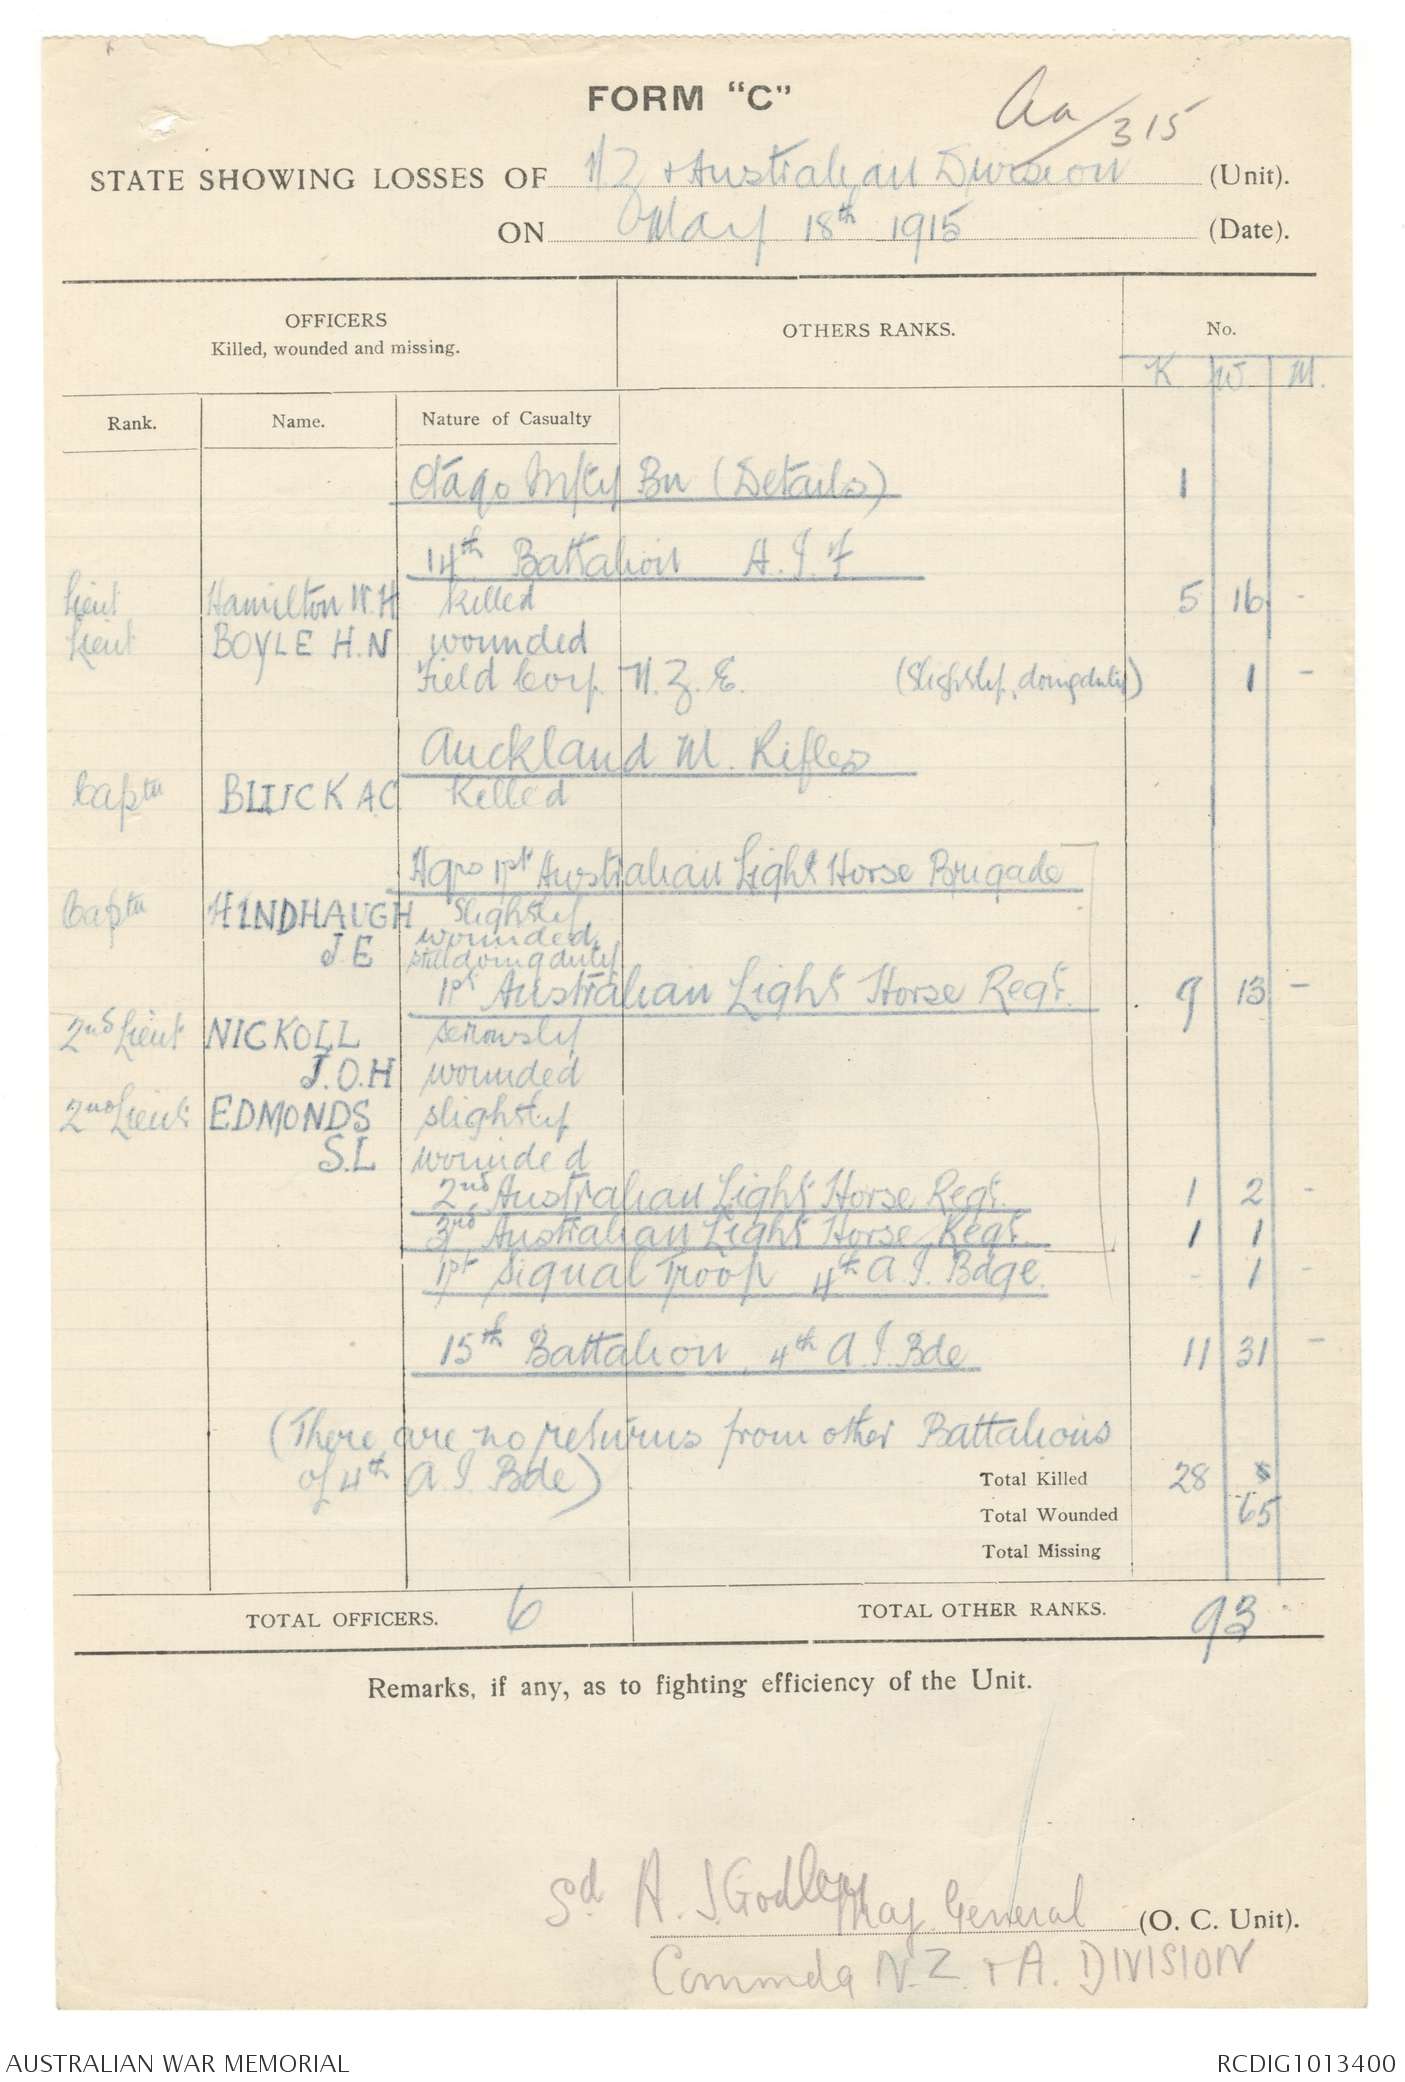 FORM "C"
Aa/315
STATE SHOWING LOSSES OF NZ & Australian Division (Unit).
ON May 18th 1915 (Date).
OFFICERS
Killed, wounded and missing.
OTHERS RANKS.
No.
K W. M.
Rank. Name. Nature of Casualty
Otago Infty Bn (Details) 1
14th Battalion A.I.F
Lieut Hamilton W.H Killed 5 16 -
Lieut BOYLE H.N wounded
Field Coy. N.Z.E. (Slightly, doing duty) 1 -
Auckland M. Rifles
Captn BLUCK AC Killed
Hqrs 1st Australian Light Horse Brigade
Captn HINDHAUGH Slightly
wounded
J E still doing duty
1st Australian Light Horse Regt. 9 13 -
2nd Lieut NICKOLL seriously
J.O.H wounded
2nd Lieut EDMONDS slightly
S.L wounded
2nd Australian Light Horse Regt. 1 2 -
3rd Australian Light Horse Regt. 1 1
1st Signal Troop 4th A.I. Bdge. - 1 -
15th Battalion 4th A.I. Bde 11 31 -
(There are no returns from other Battalions
of 4th A I Bde)
Total Killed 28
Total Wounded 65
Total Missing
TOTAL OFFICERS. 6 TOTAL OTHER RANKS. 93 -
Remarks, if any, as to fighting efficiency of the Unit.
Sd A. J Godley Maj. General (O. C. Unit).
Commdg N.Z. & A. DIVISION
AUSTRALIAN WAR MEMORIAL RCDIG1013400